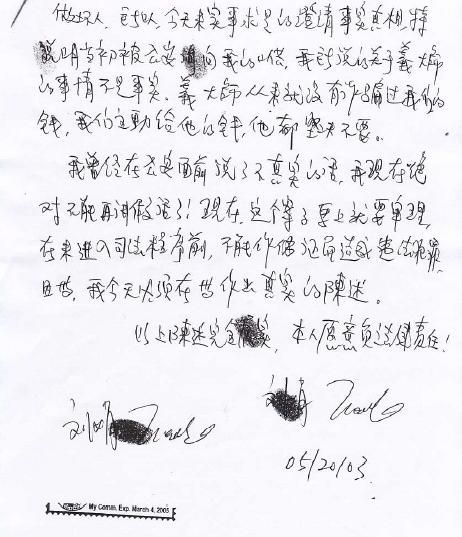 做坏人, 所以, 今天来实事求是的澄清事实真相, 特
说明当初被公安询问我的口供, 我所说的关于義大師
的事情不是事实. 義大師从来就没有诈骗过我们的
钱, 我们主動给他的钱, 他都坚决不要.
我曾经在公安面前说了不真实的话, 我现在绝
对不能再讲假话了! 现在, 这個案子马上就要审理,
在未进入司法程序前, 不能作偽证而造成违法犯罪,
因此, 我今天必须在此作出真实的陳述。
以上陳述完全真实, 本人愿意负法律责任!
刘
刘
05/20/03.
My Comm. Exp. March 4, 2005